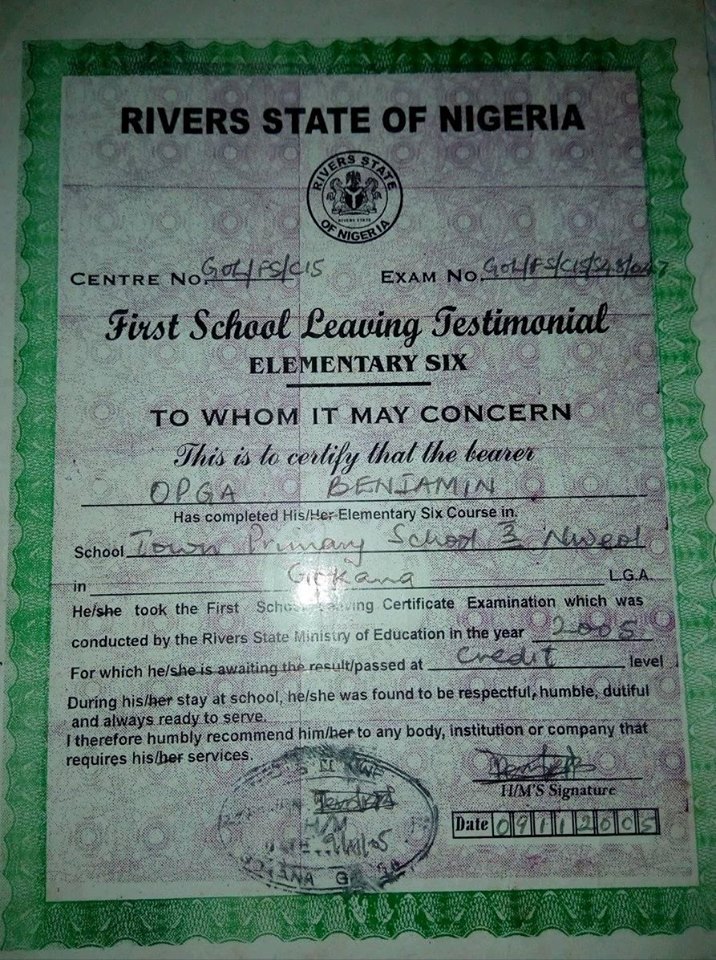 RIVERS STATE OF NIGERIA
RIVERS STATE
RIVERS STATE
OF NIGERIA
CENTRE No. GOL/FS/C15 EXAM No. GOL/FS/C15/S48/047
First School Leaving Testimonial
ELEMENTARY SIX
TO WHOM IT MAY CONCERN
This is to certify that the bearer
OPGA BENJAMIN
Has completed His/Her Elementary Six Course in.
School Town Primary School 3 Nweol
in Gokana L.G.A.
He/she took the First School Leaving Certificate Examination which was
conducted by the Rivers State Ministry of Education in the year 2005
For which he/she is awaiting the result/passed at Credit level
During his/her stay at school, he/she was found to be respectful, humble, dutiful
and always ready to serve.
I therefore humbly recommend him/her to any body, institution or company that
requires his/her services.
H/M'S Signature
Date 09112005